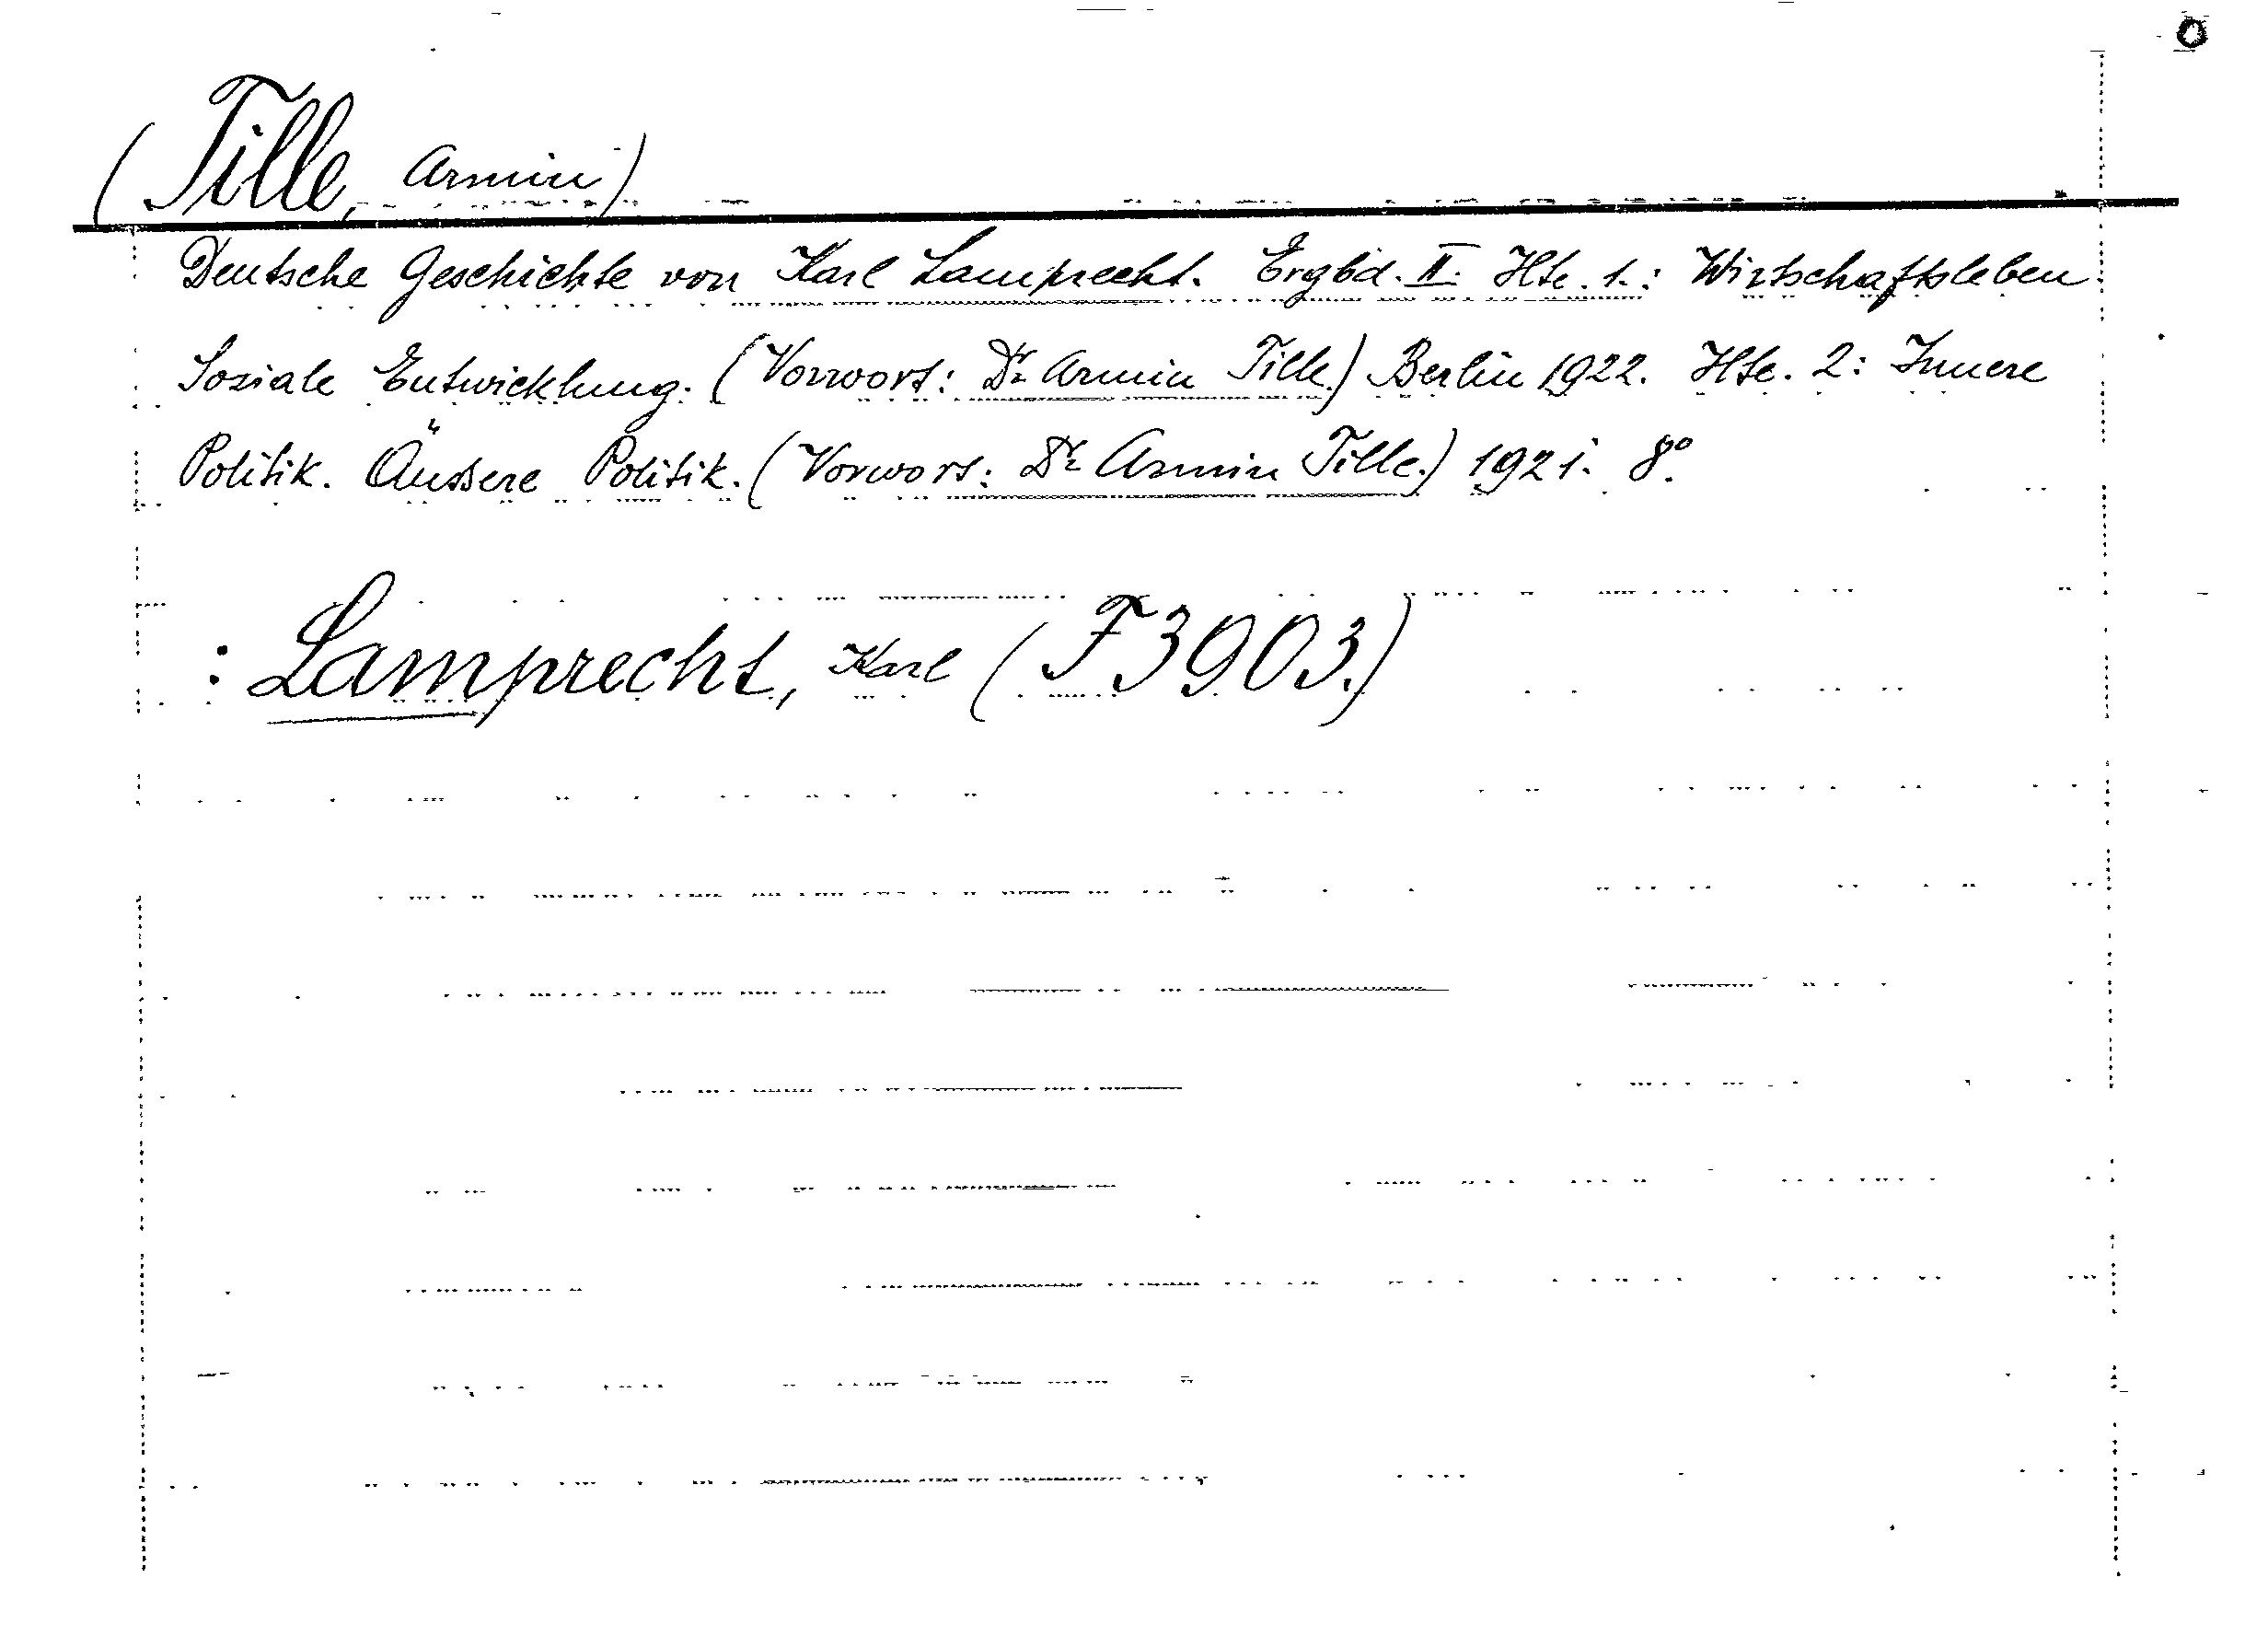 (Tille, Armin)
Deutsche Geschichte von Karl Lamprecht. Ergbd. II. Hte. 1.: Wirtschaftsleben
Soziale Entwicklung. (Vorwort: Dr Armin Tille.) Berlin 1922. Hte. 2: Innere
Politik. Äussere Politik. (Vorwort: Dr Armin Tille.) 1921. 8°.
: Lamprecht, Karl (F3903.)